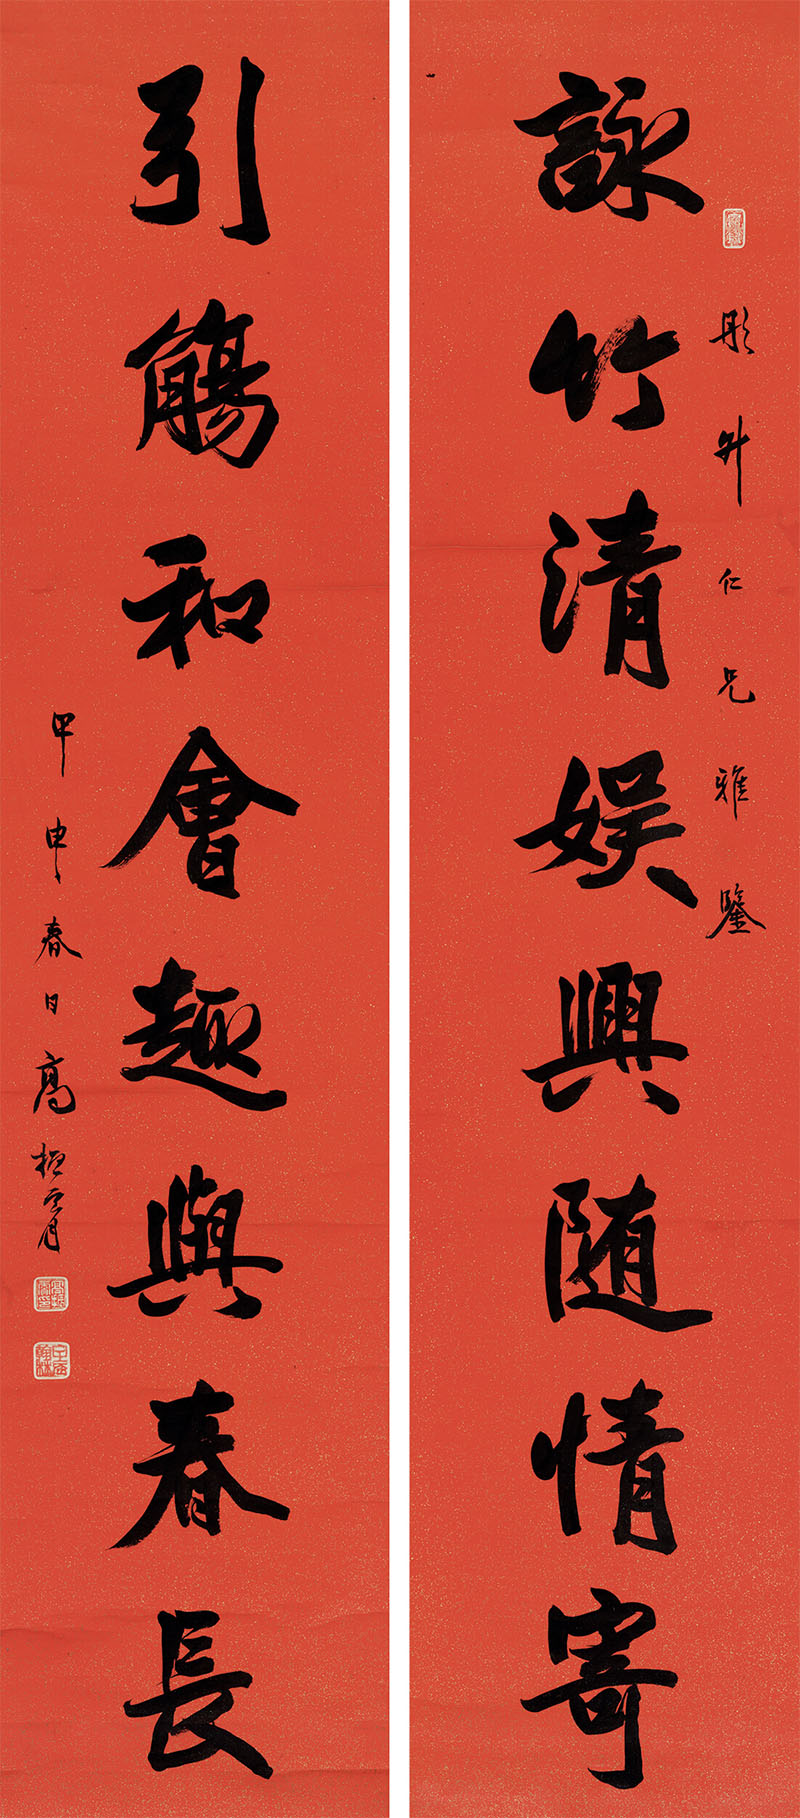 詠竹清娱興随情寄
彤升仁兄雅鑒
引觴和會趣與春長
甲申春日高振霄